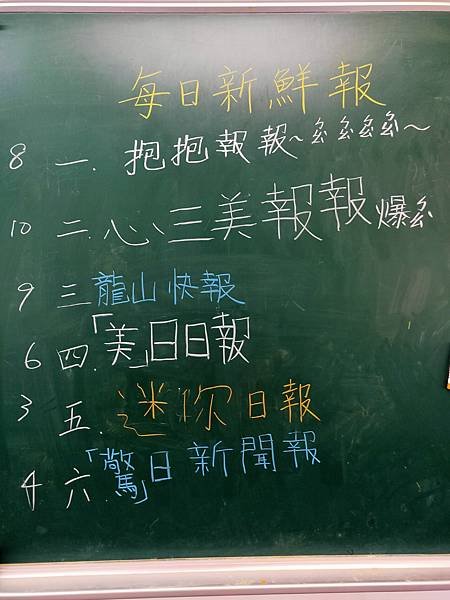 每日新鮮報
8 一. 抱抱報報~幺幺幺幺~
10 二. 心三美報報爆幺
9 三 龍山快報
6 四.「美」日日報
3 五. 迷你日報
4 六.「驚」日新聞報